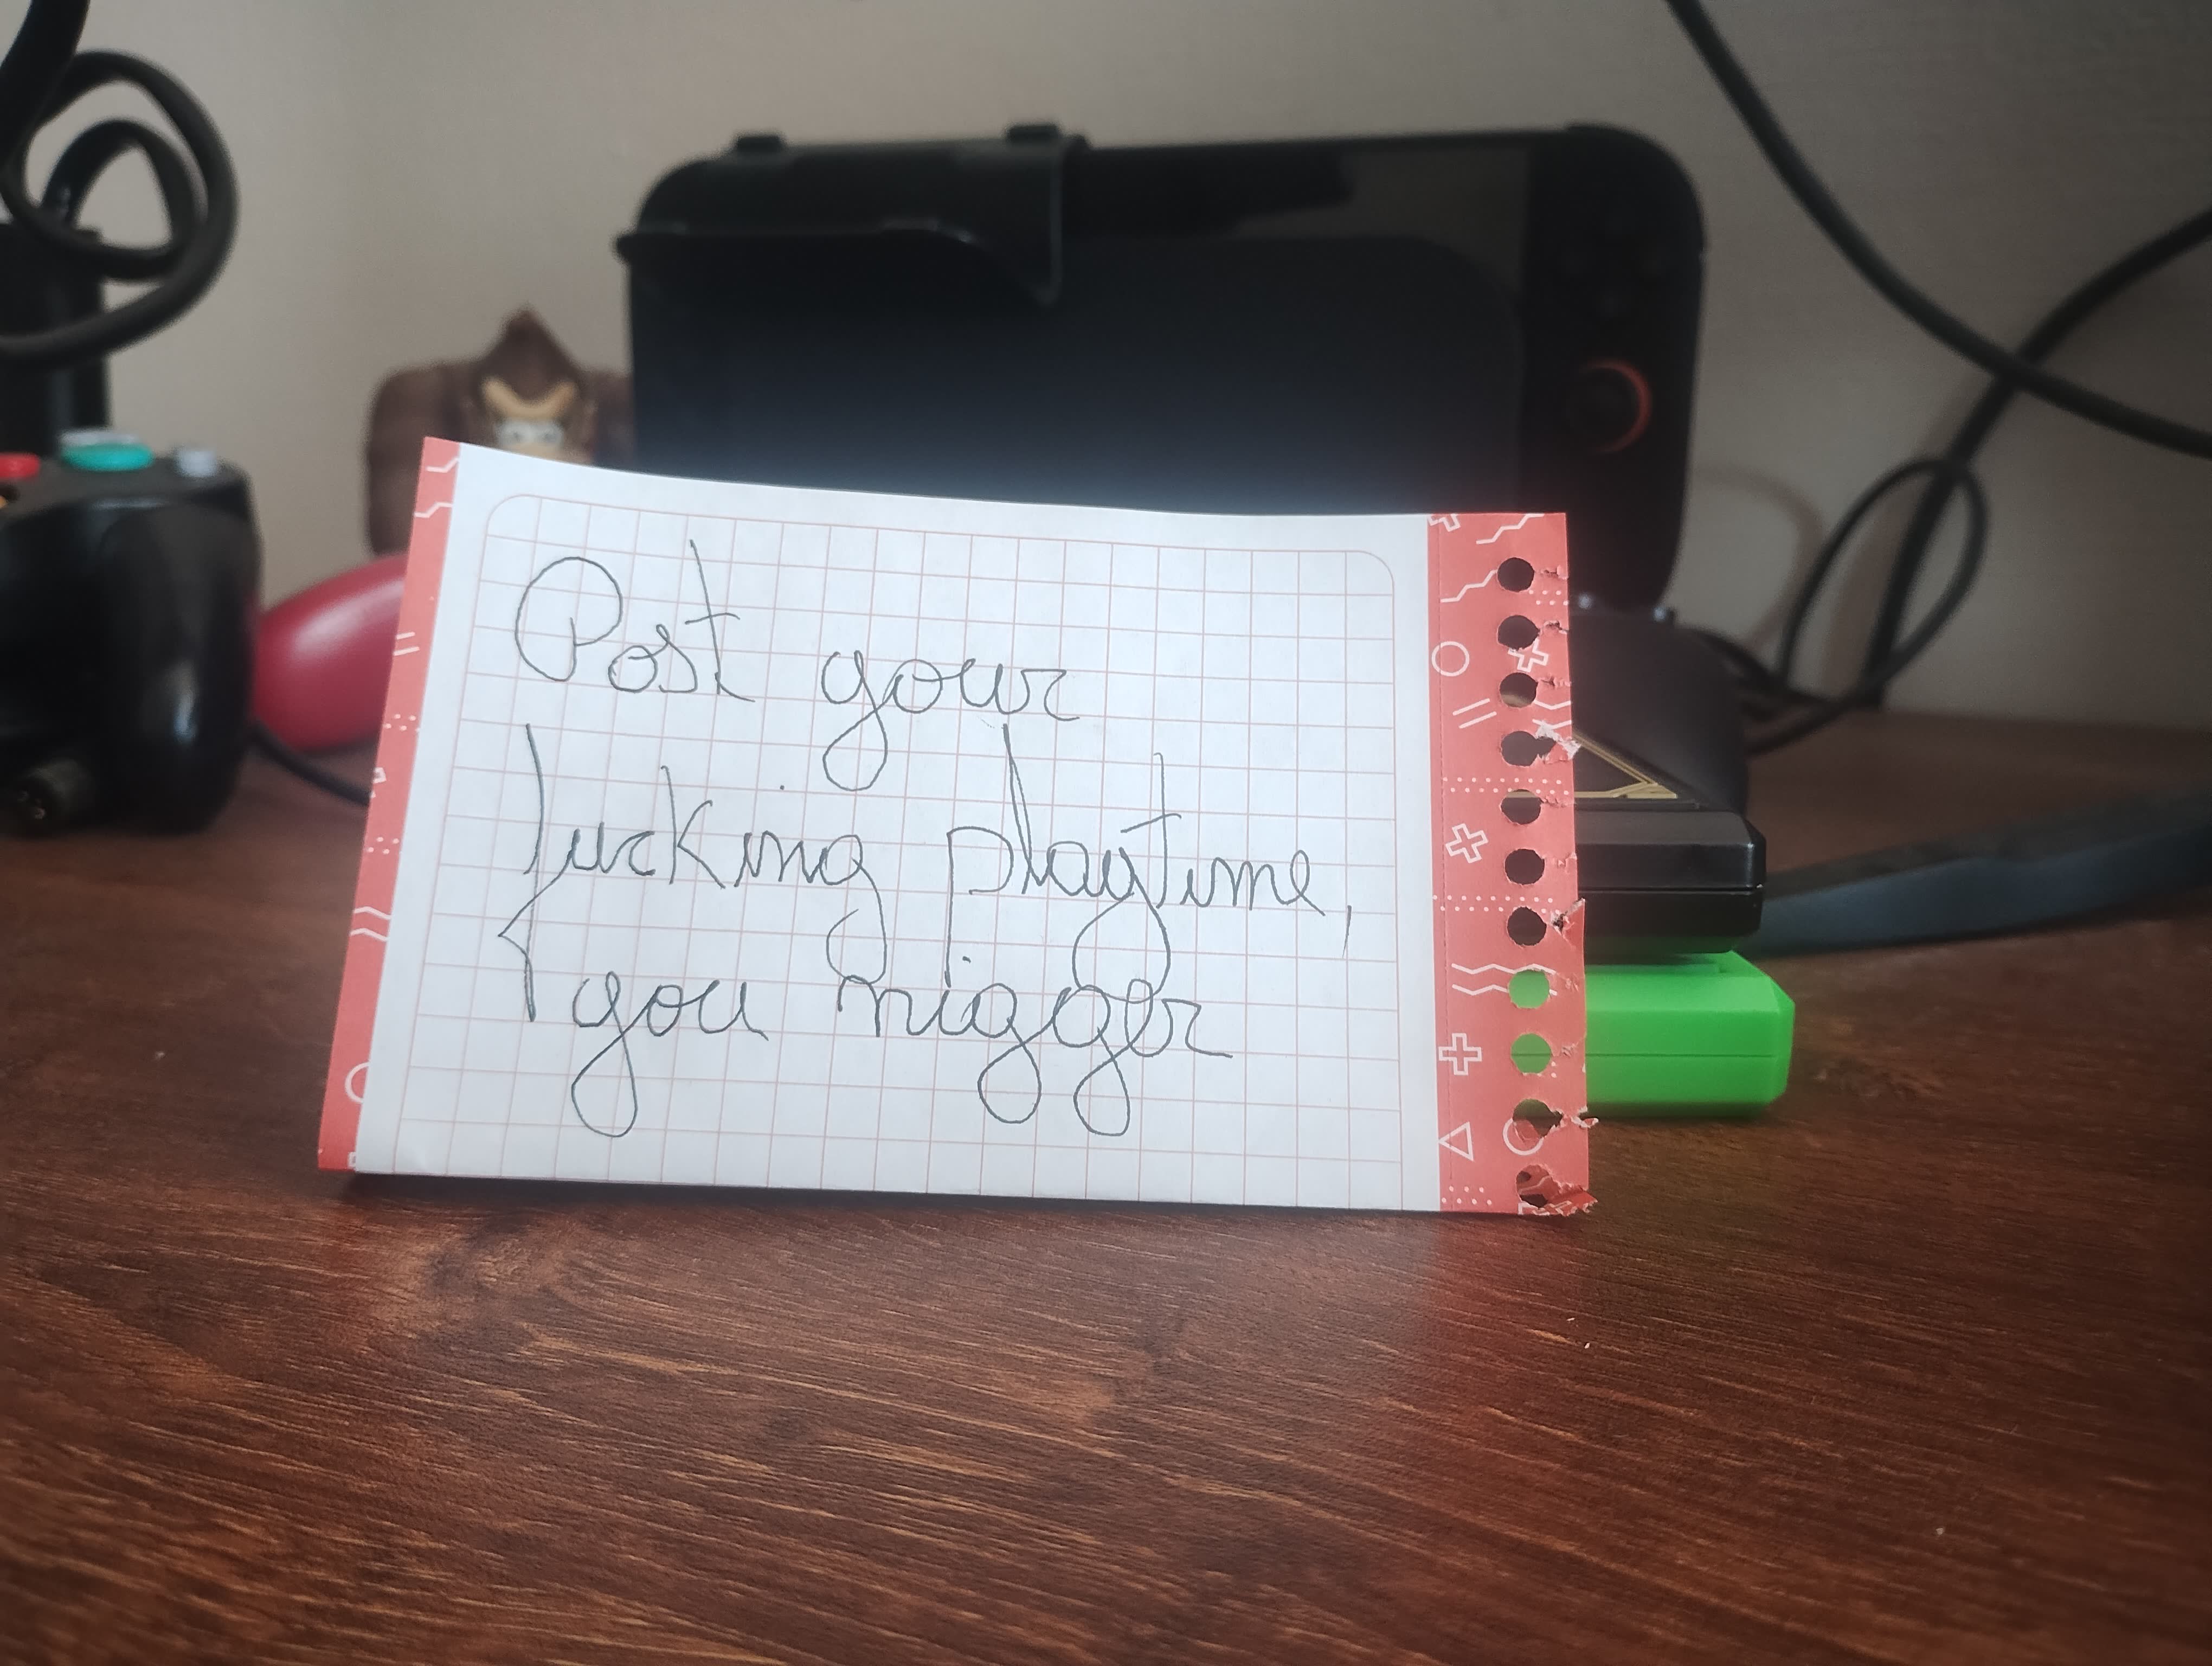 Post your
fucking playtime,
you nigger